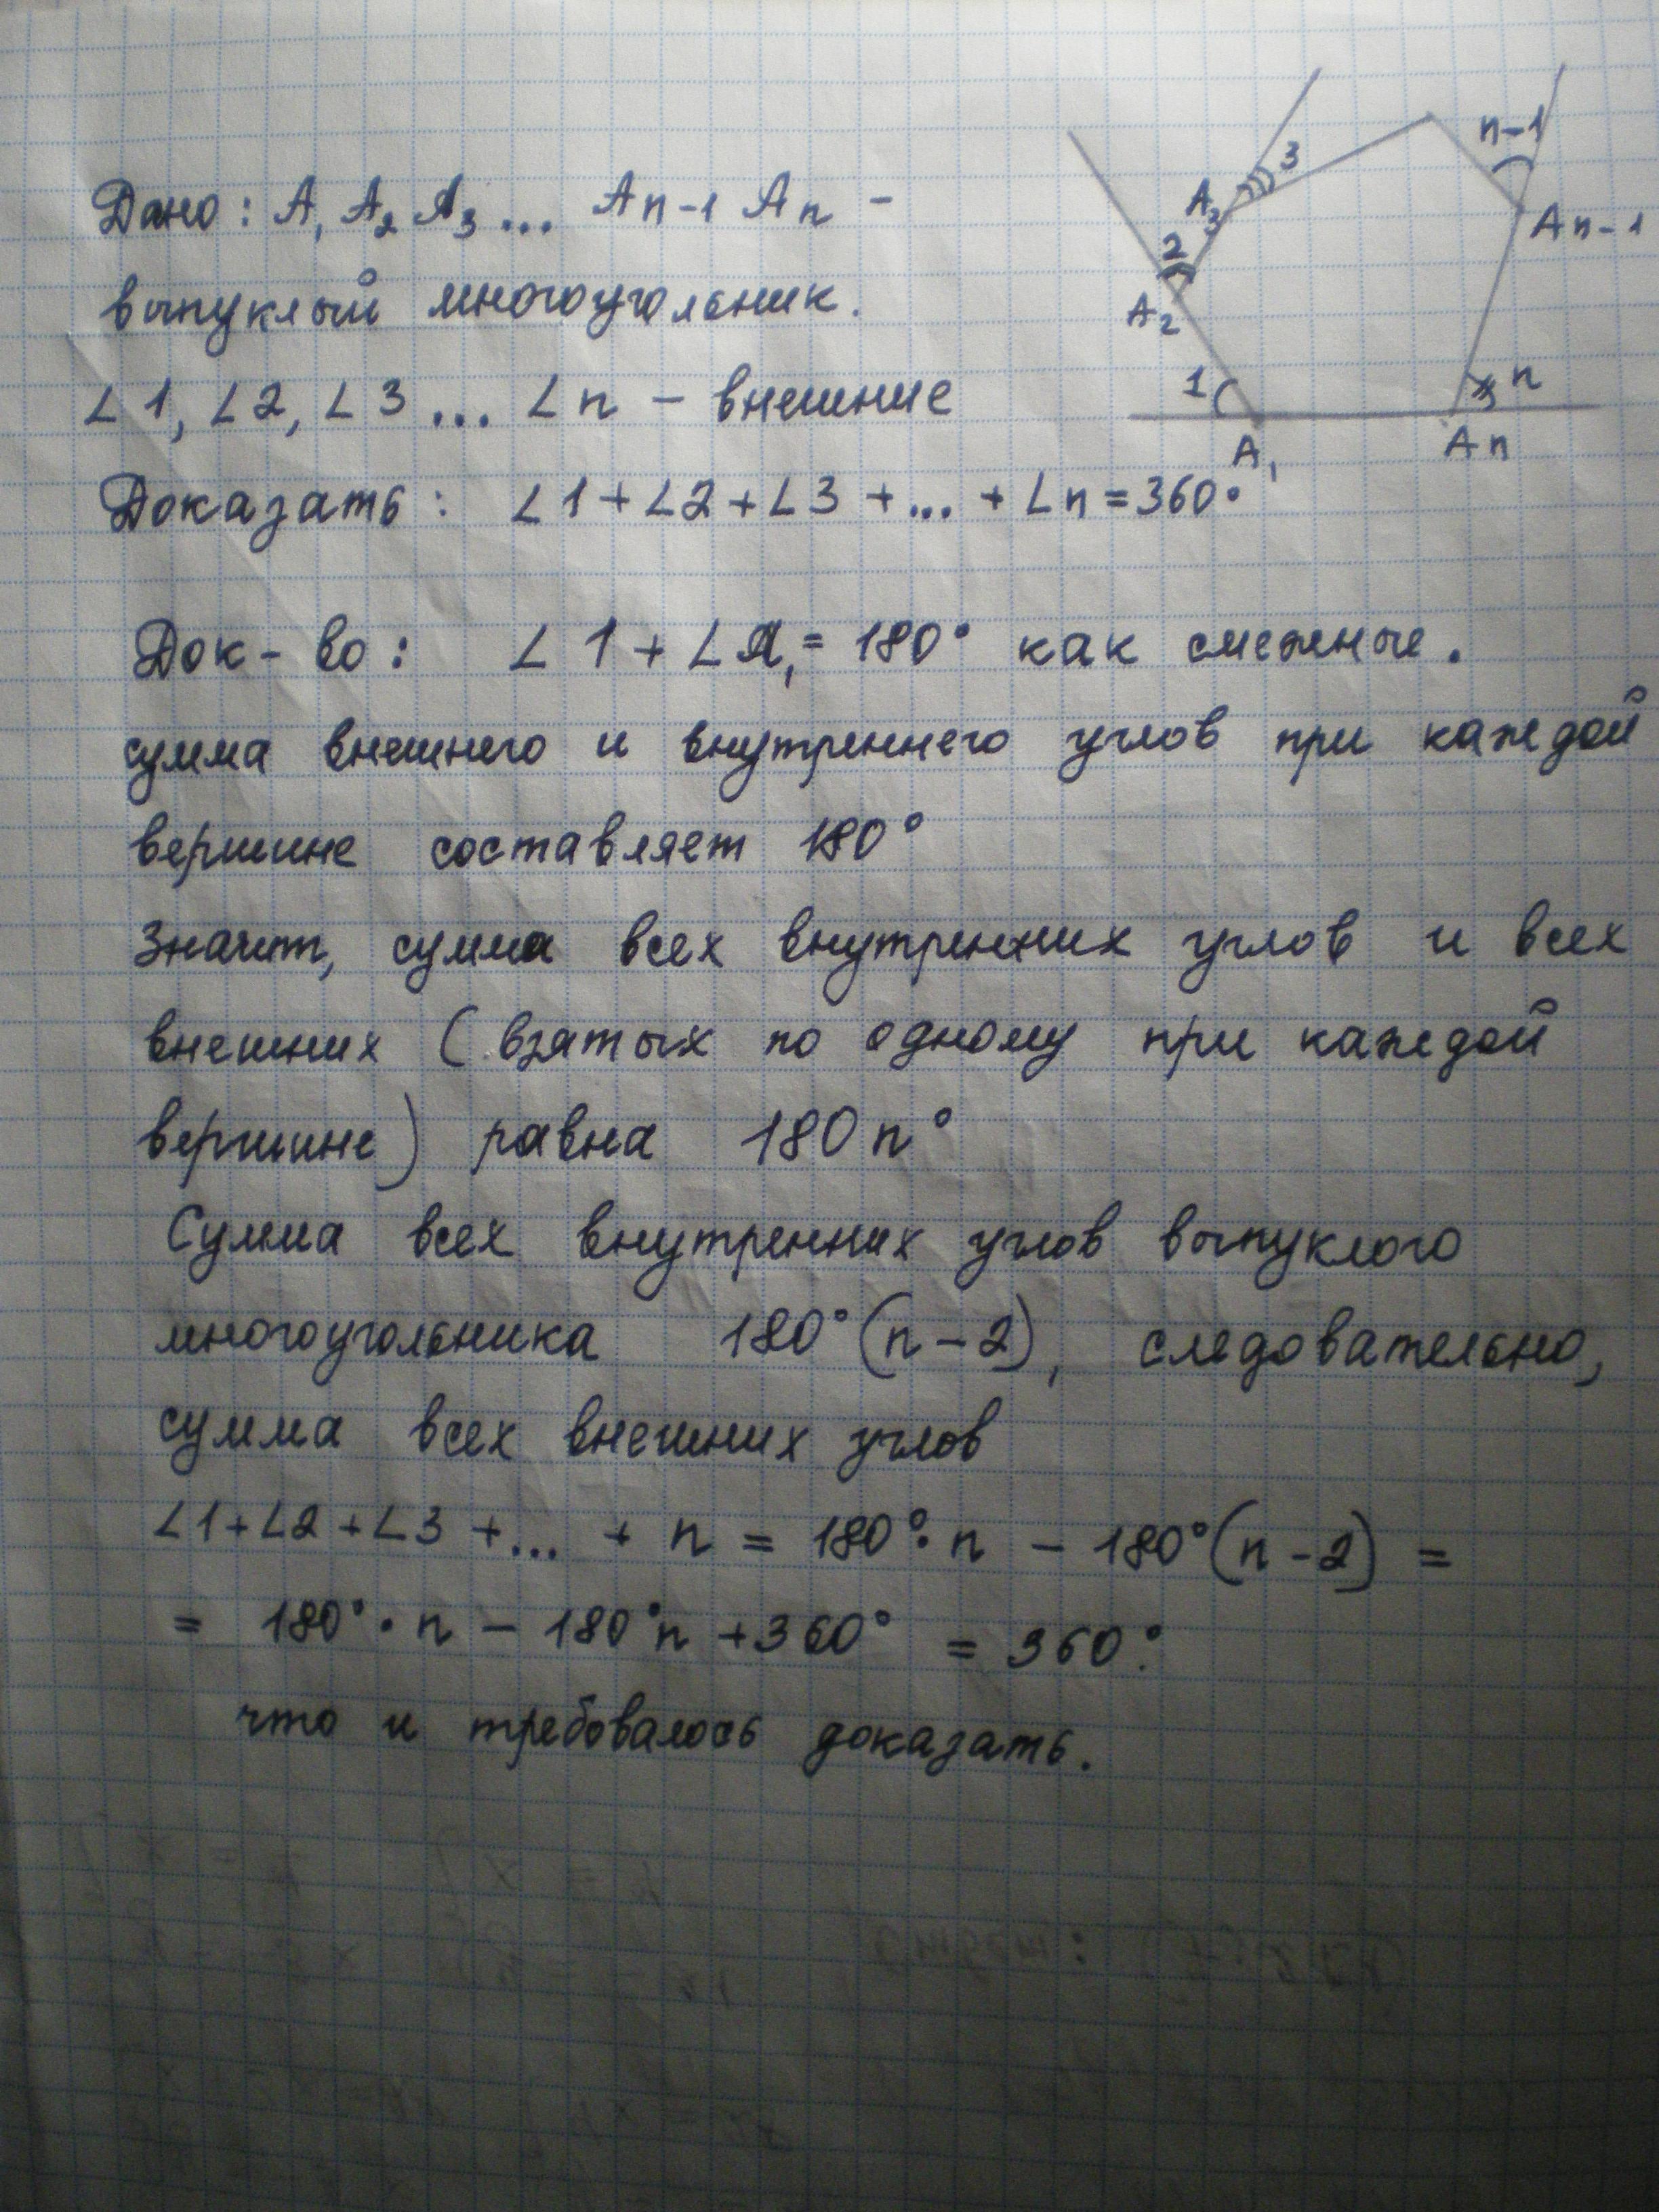 Дано: A₁ A₂ A₃ ... Aₙ₋₁ Aₙ –
выпуклый многоугольник.
∠1, ∠2, ∠3 ... ∠n – внешние
Доказать: ∠1 + ∠2 + ∠3 + ... + ∠n = 360°
3
n-1
A₃
Aₙ₋₁
2
A₂
1
n
A₁
Aₙ
Док-во: ∠1 + ∠A₁ = 180° как смежные.
сумма внешнего и внутреннего углов при каждой
вершине составляет 180°
Значит, сумма всех внутренних углов и всех
внешних (взятых по одному при каждой
вершине) равна 180n°
Сумма всех внутренних углов выпуклого
многоугольника 180°(n-2), следовательно,
сумма всех внешних углов
∠1+∠2+∠3 +... + n = 180°·n – 180°(n-2) =
= 180°·n – 180°n +360° = 360°.
что и требовалось доказать.